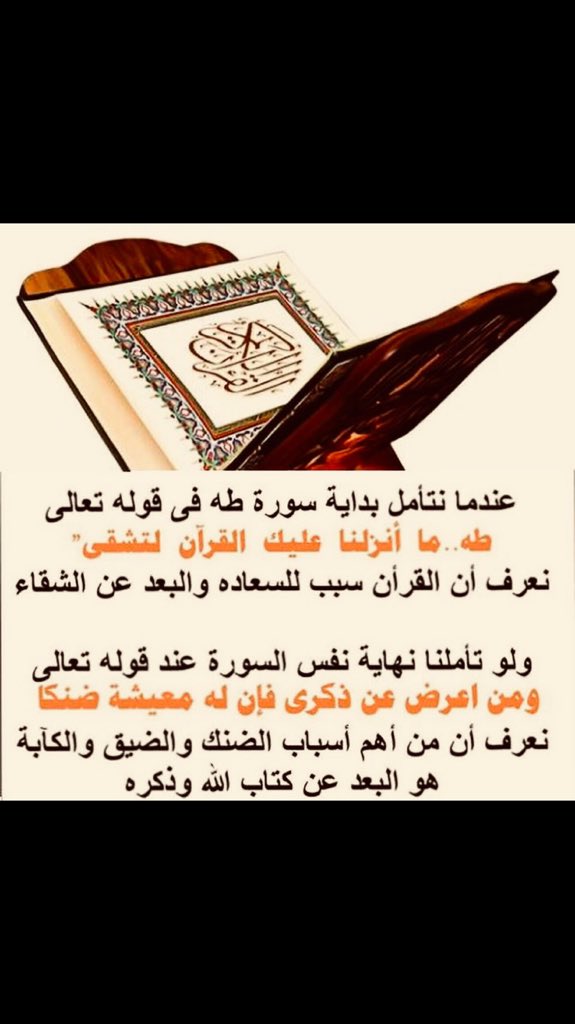 القرآن الكريم
عندما نتأمل بداية سورة طه فى قوله تعالى
طه..ما أنزلنا عليك القرآن لتشقى"
نعرف أن القرأن سبب للسعاده والبعد عن الشقاء
ولو تأملنا نهاية نفس السورة عند قوله تعالى
ومن اعرض عن ذكرى فإن له معيشة ضنكا
نعرف أن من أهم أسباب الضنك والضيق والكآبة
هو البعد عن كتاب الله وذكره